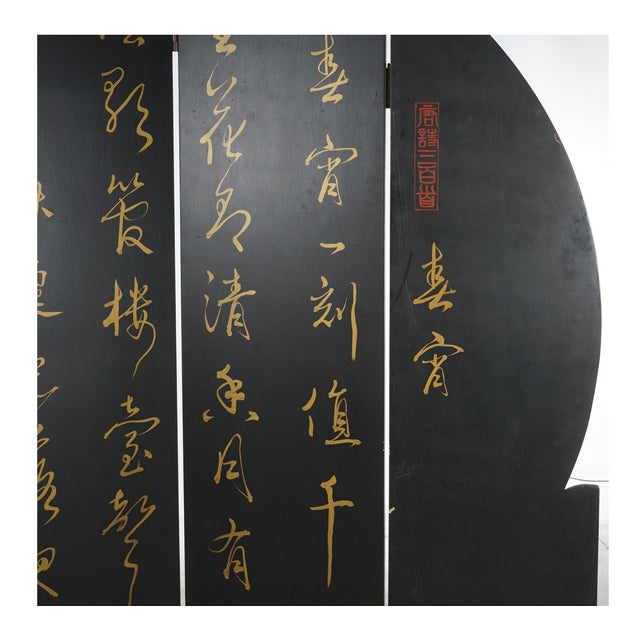 唐詩三百首
春宵
春宵一刻值千
花有清香月有
歌管楼臺聲
落夜